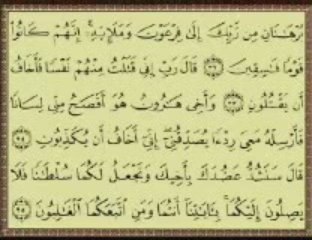 بُرْهَٰنَانِ مِن رَّبِّكَ إِلَىٰ فِرْعَوْنَ وَمَلَإِيْهِۦٓ ۚ إِنَّهُمْ كَانُوا۟
قَوْمًا فَٰسِقِينَ ﴿٣٢﴾ قَالَ رَبِّ إِنِّى قَتَلْتُ مِنْهُمْ نَفْسًا فَأَخَافُ
أَن يَقْتُلُونِ ﴿٣٣﴾ وَأَخِى هَٰرُونُ هُوَ أَفْصَحُ مِنِّى لِسَانًا
فَأَرْسِلْهُ مَعِىَ رِدْءًا يُصَدِّقُنِىٓ ۖ إِنِّىٓ أَخَافُ أَن يُكَذِّبُونِ ﴿٣٤﴾
قَالَ سَنَشُدُّ عَضُدَكَ بِأَخِيكَ وَنَجْعَلُ لَكُمَا سُلْطَٰنًا فَلَا
يَصِلُونَ إِلَيْكُمَا ۚ بِـَٔايَٰتِنَآ أَنتُمَا وَمَنِ ٱتَّبَعَكُمَا ٱلْغَٰلِبُونَ ﴿٣٥﴾